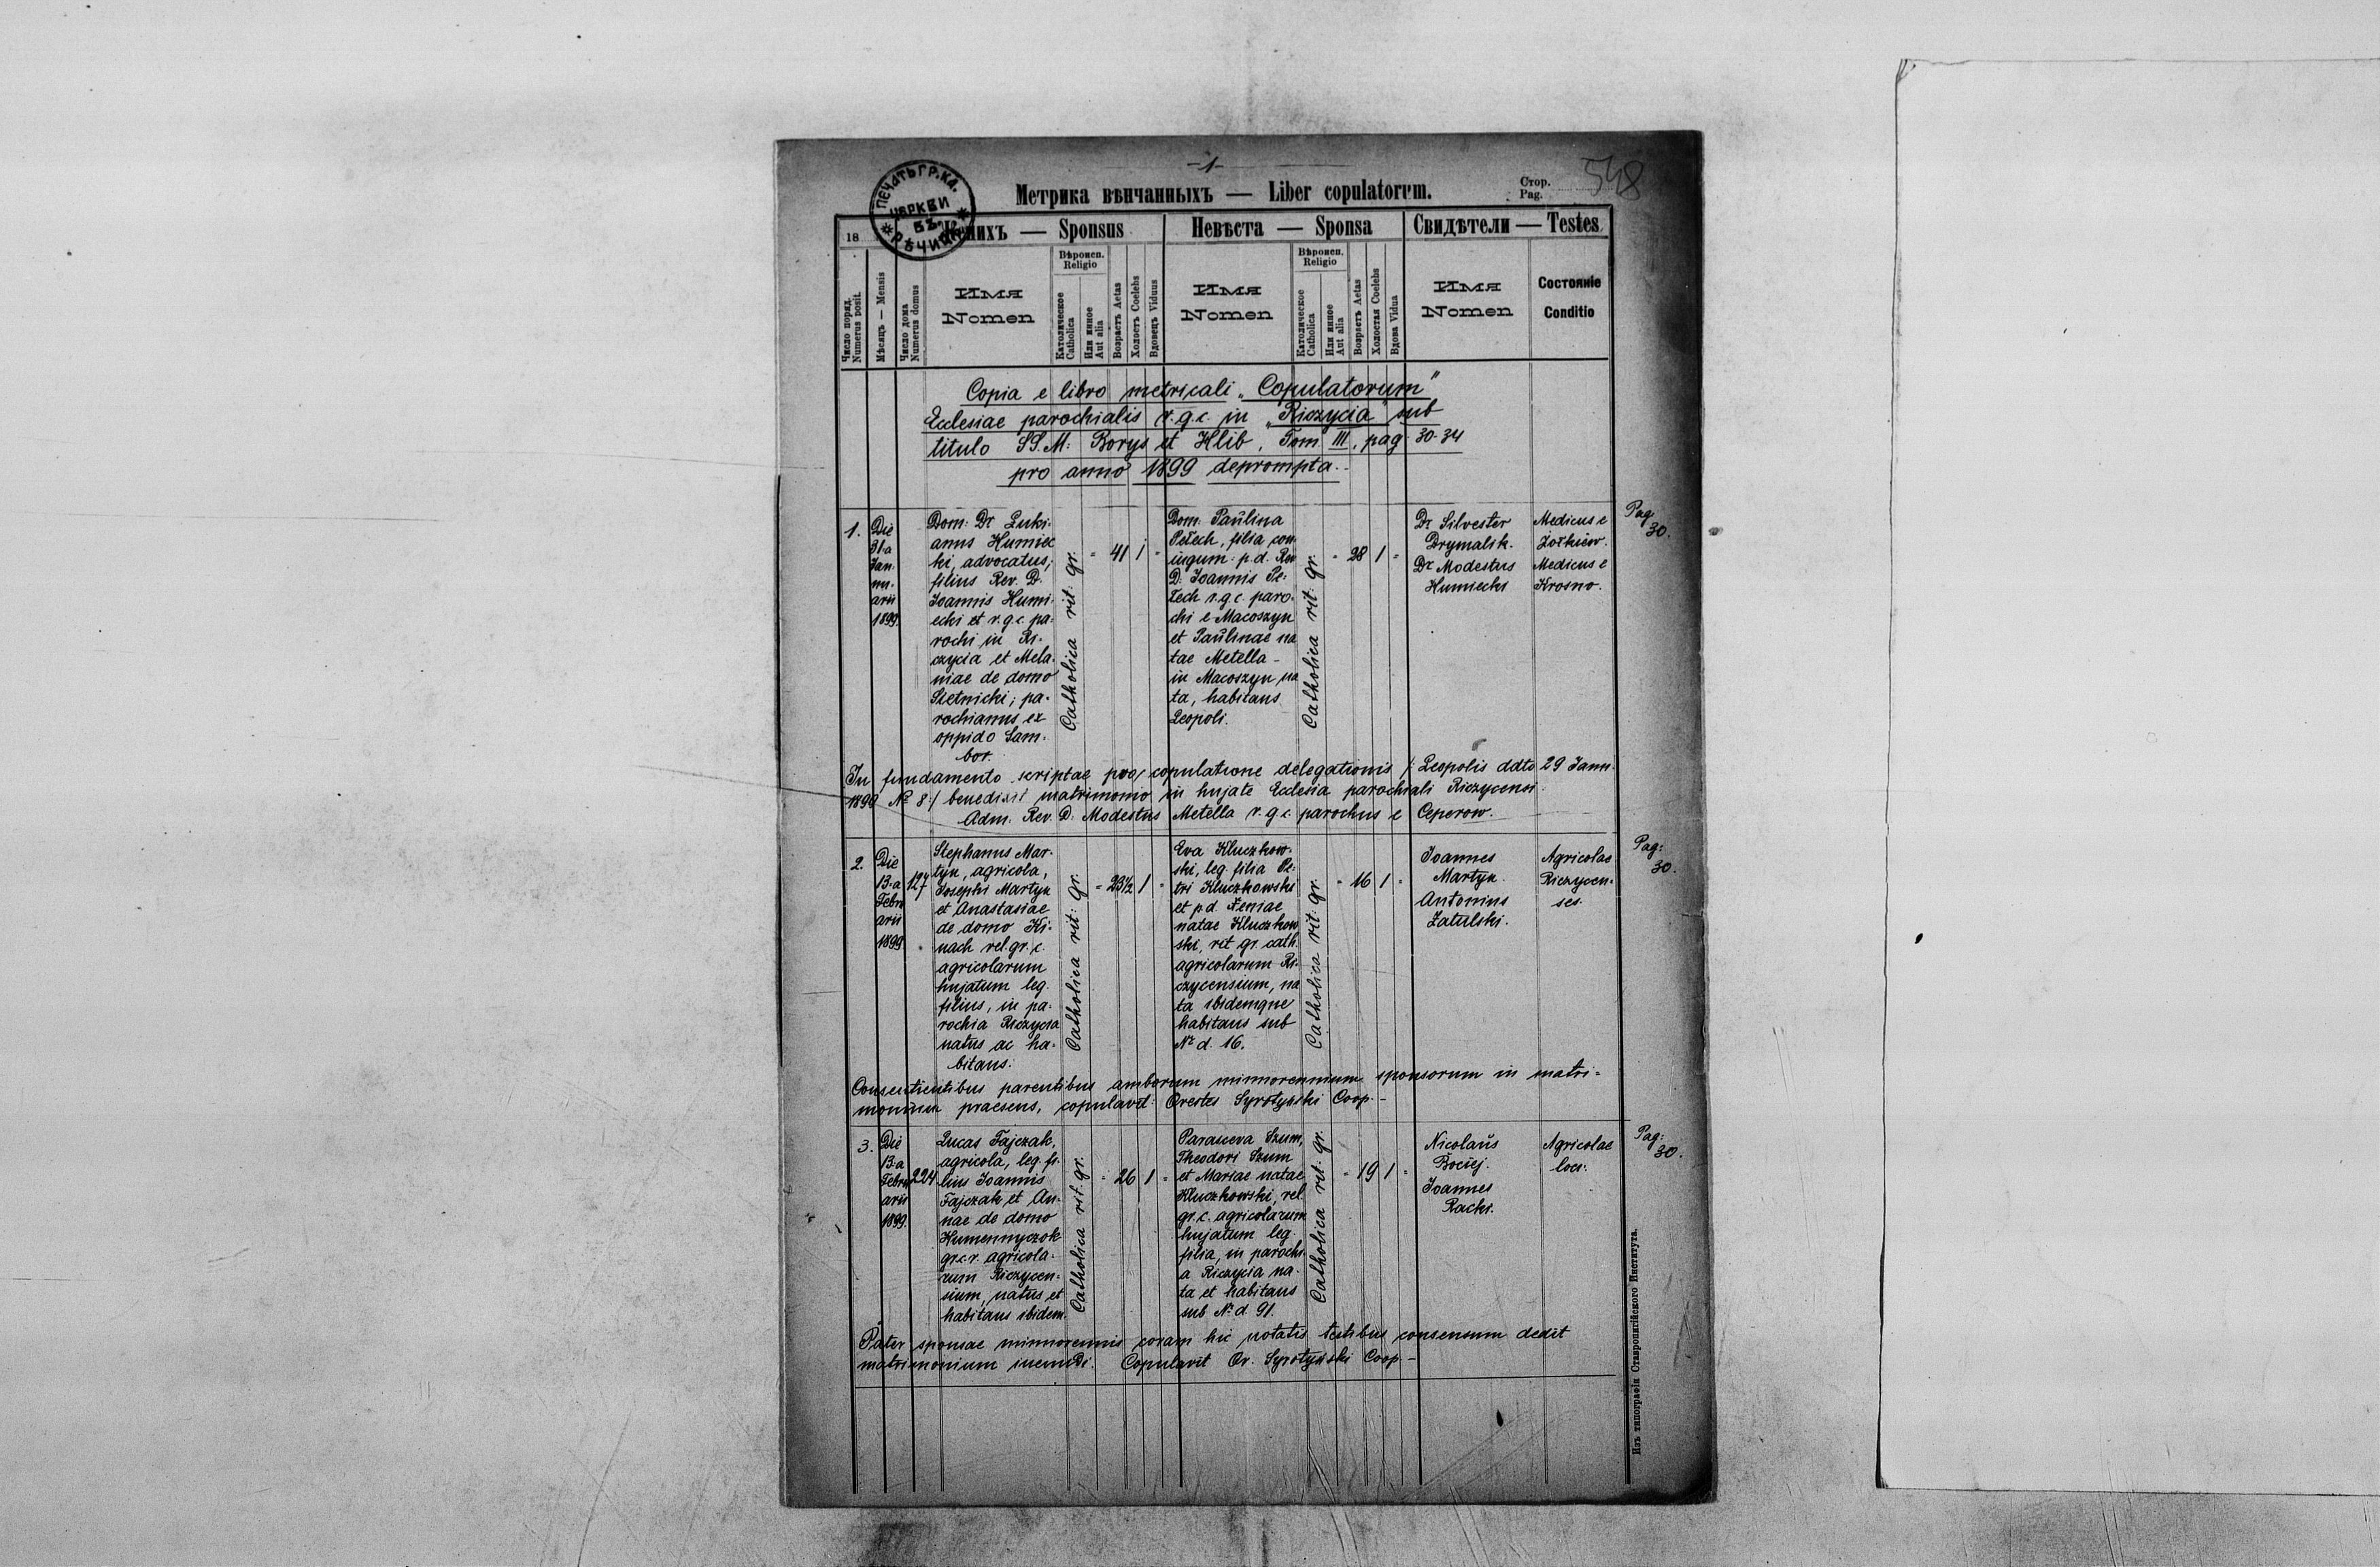 -1-
548
Метрика вѣнчанныхъ — Liber copulatorum.
Стор.
Pag.
ПЕЧАТЬ ГР.КА.
ЦЕРКВИ
ВЪ
РѢЧИЦ
18
Женихъ — Sponsus
Невѣста — Sponsa
Свидѣтели — Testes
Число поряд.
Numerus posit.
Мѣсяць — Mensis
Число дома
Numerus domus
Имя
Nomen
Вѣроисп.
Religio
Католическое
Catholica
Или иное
Aut alia
Возрастъ Aetas
Холостъ Coelebs
Вдовецъ Viduus
Имя
Nomen
Вѣроисп.
Religio
Католическое
Catholica
Или иное
Aut alia
Возрастъ Aetas
Холостая Coelebs
Вдова Vidua
Имя
Nomen
Состояніе
Conditio
Copia e libro metricali „Copulatorum"
Ecclesiae parochialis r.g.c. in „Riczycia" sub
titulo SS.M: Borys et Hlib, Tom. III, pag. 30-34
pro anno 1899 deprompta.
1.
Die
31-a
Jan
nu-
arii
1899.
Dom: Dr Luki-
anus Humiec
ki, advocatus,
filius Rev. D.
Joannis Humi-
ecki et r.g.c. pa-
rochi in Ri-
czycia et Mela-
niae de domo
Sletnicki; pa-
rochianus ex
oppido Sam-
bor.
Catholica rit: gr.
- 41 1 -
Dom: Paulina
Pełech, filia con
iugum: p.d. Rev
D. Joannis Pe-
łech r.g.c. paro-
chi e Macoszyn
et Paulinae na
tae Metella -
in Macoszyn na
ta, habitans
Leopoli.
Catholica rit: gr.
- 28 1 -
Dr Silvester
Drymalik.
Dr Modestus
Humiecki
Medicus e
Żołkiew.
Medicus e
Krosno.
Pag
30.
In fundamento scriptae pro copulatione delegationis /: Leopolis ddto 29 Jann.
1899 No 8 :/ benedixit matrimonio in hujate Ecclesia parochiali Riczycensi
Adm. Rev. D. Modestus Metella r.g.c. parochus e Ceperow.
2.
Die
13-a
Febru
arii
1899
127
Stephanus Mar-
tyn, agricola,
Josephi Martyn
et Anastasiae
de domo Ki-
nach rel. gr. c.
agricolarum
hujatum leg.
filius, in pa-
rochia Riczycia
natus ac ha-
bitans.
Catholica rit: gr.
- 23½ 1 -
Eva Kluczkow-
ski, leg. filia Pe-
tri Kluczkowski
et p.d. Xeniae
natae Kluczkow
ski, rit. gr. cath.
agricolarum Ri-
czycensium, na
ta ibidemque
habitans sub
No d. 16.
Catholica rit: gr.
- 16 1 -
Joannes
Martyn.
Antonius
Zatulski.
Agricolae
Riczycen-
ses.
Pag:
30.
Consentientibus parentibus amborum minnorennium sponsorum in matri-
monium praesens, copulavit: Orestes Syrotyński Coop. -
3.
Die
13-a
Febru
arii
1899.
224
Lucas Fajczak,
agricola, leg. fi-
lius Joannis
Fajczak et An-
nae de domo
Humennyczok
gr.c.r. agricola-
rum Riczycen-
sium, natus et
habitans ibidem.
Catholica rit: gr.
- 26 1 -
Parasceva Szum,
Theodori Szum
et Mariae natae
Kluczkowski, rel
gr.c. agricolarum
hujatum leg.
filia, in parochi-
a Riczycia na-
ta et habitans
sub No d. 91.
Catholica rit: gr.
- 19 1 -
Nicolaus
Bociej.
Joannes
Racki.
Agricolae
loci.
Pag:
30.
Pater sponsae minnorennis coram hic notatis testibus consensum dedit
matrimonium ineundi. Copulavit Or. Syrotyński Coop -
Изъ типографіи Ставропигійского Института.